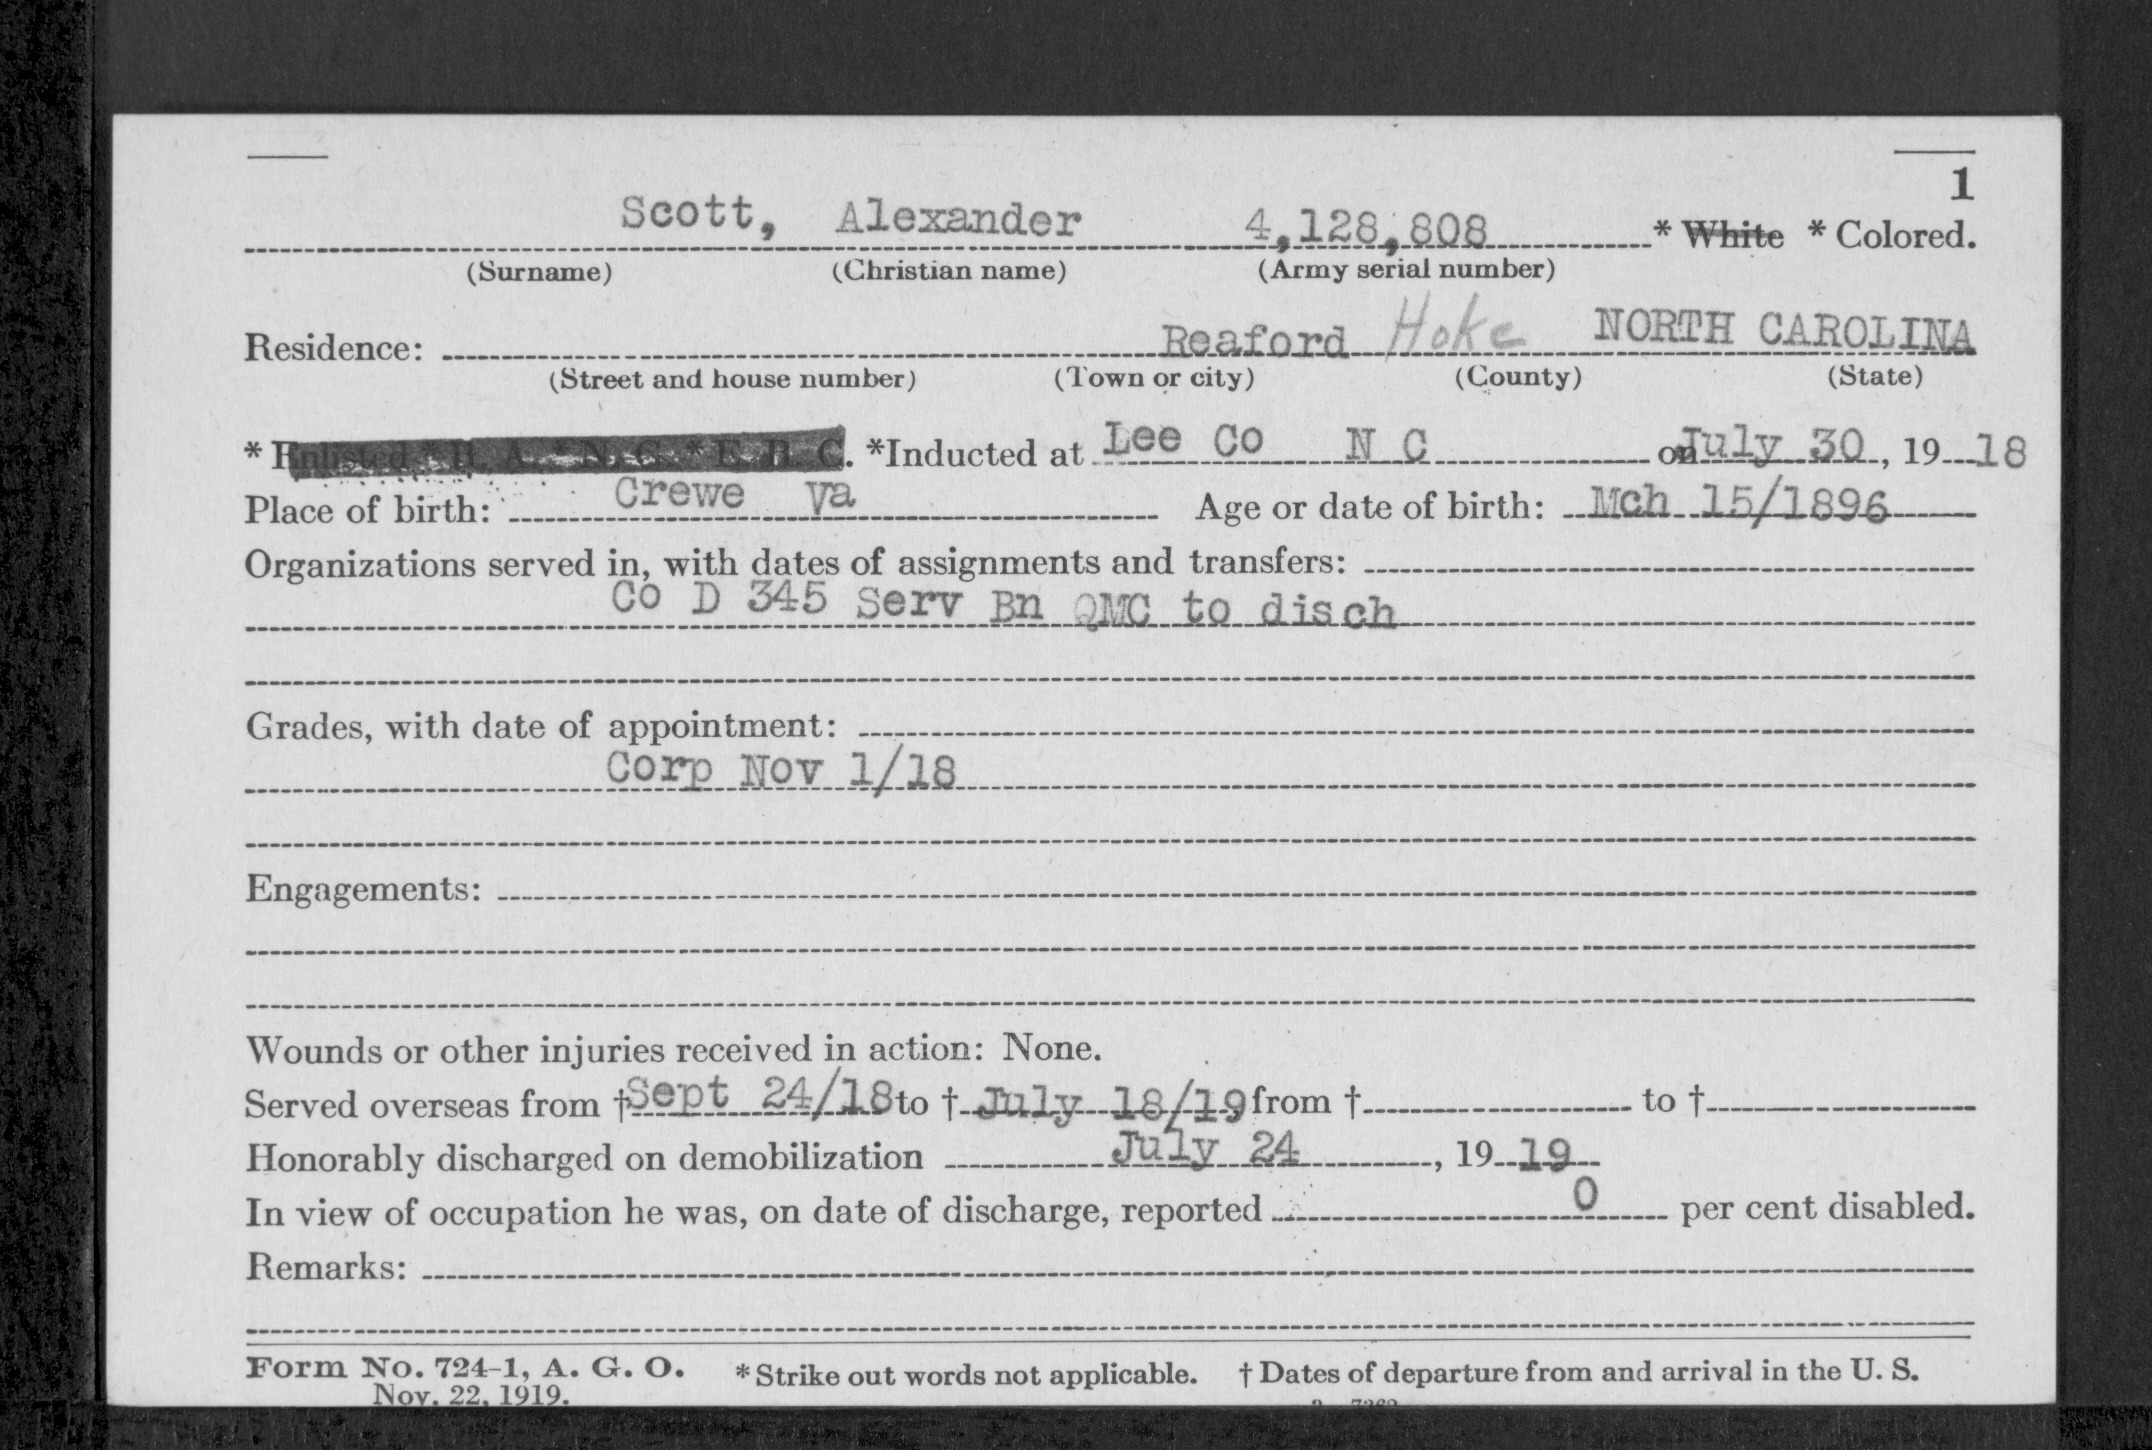 1
Scott, Alexander 4,128,808 * White * Colored.
(Surname) (Christian name) (Army serial number)
Residence: Reaford Hoke NORTH CAROLINA
(Street and house number) (Town or city) (County) (State)
* Enlisted * R. A. * N. G. * E. R. C. *Inducted at Lee Co N C on July 30, 19 18
Place of birth: Crewe Va Age or date of birth: Mch 15/1896
Organizations served in, with dates of assignments and transfers:
Co D 345 Serv Bn QMC to disch
Grades, with date of appointment:
Corp Nov 1/18
Engagements:
Wounds or other injuries received in action: None.
Served overseas from † Sept 24/18 to † July 18/19 from † to †
Honorably discharged on demobilization July 24, 19 19
In view of occupation he was, on date of discharge, reported 0 per cent disabled.
Remarks:
Form No. 724-1, A. G. O. * Strike out words not applicable. † Dates of departure from and arrival in the U. S.
Nov. 22, 1919.